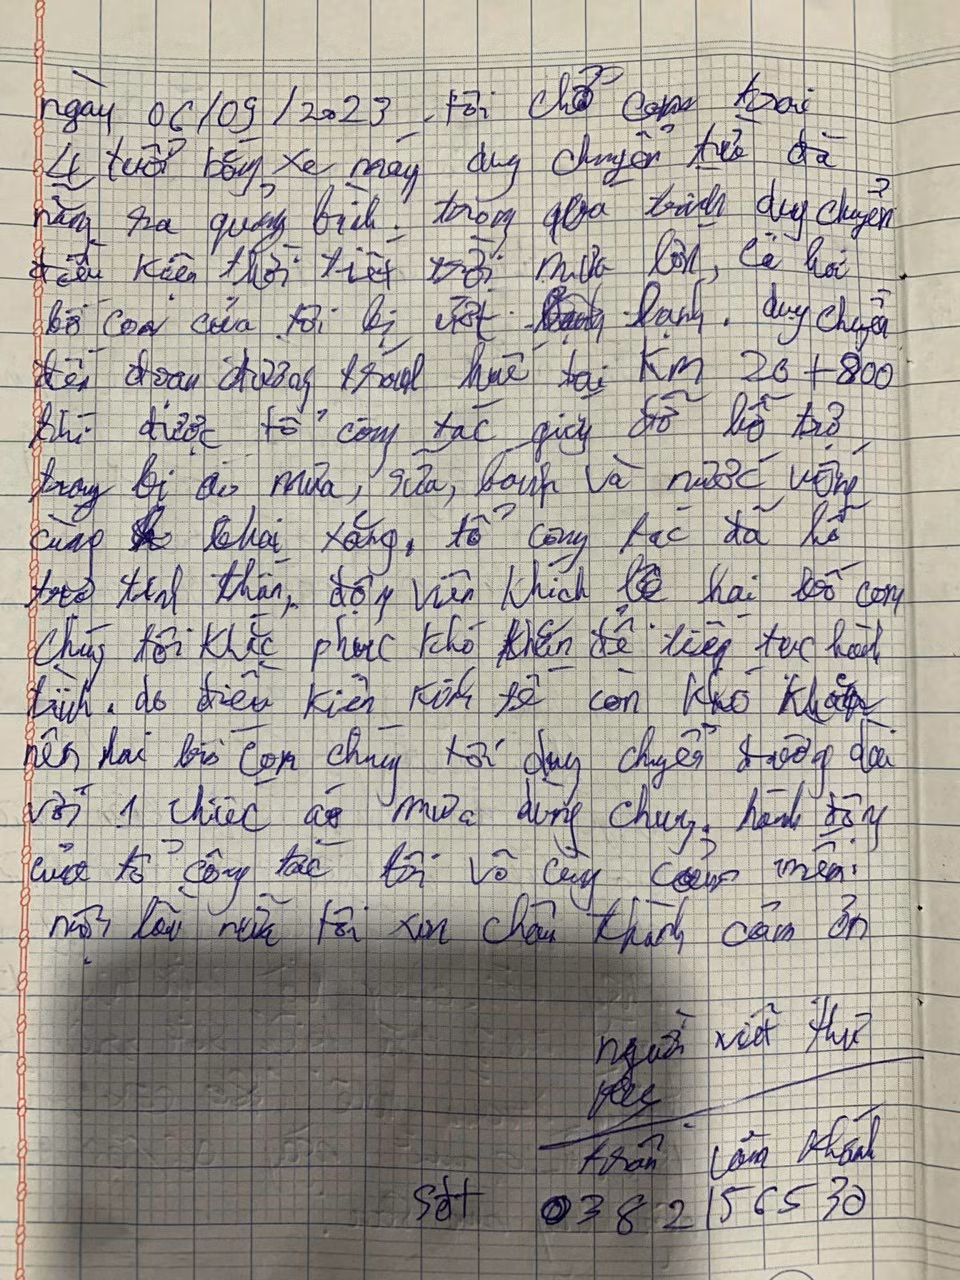 ngày 06/09/2023. tôi chở con trai
4 tuổi bằng xe máy duy chuyển từ đà
nẵng ra quảng bình. trong quá trình duy chuyển
điều kiện thời tiết trời mưa lớn, cả hai
bố con của tôi bị ướt lạnh. duy chuyển
đến đoạn đường tránh huế tại Km 26+800
thì được tổ công tác giúp đỡ hỗ trợ
trang bị áo mưa, sữa, bánh và nước uống
cùng chai xăng. tổ công tác đã hỗ
trợ tinh thần, động viên khích lệ hai bố con
chúng tôi khắc phục khó khăn để tiếp tục hành
trình. do điều kiện kinh tế còn khó khăn
nên hai bố con chúng tôi duy chuyển đường dài
với 1 chiếc áo mưa dùng chung. hành động
của tổ công tác tôi vô cùng cảm mến.
một lần nữa tôi xin chân thành cảm ơn
người viết thư
trần văn khánh
sđt 0382156530